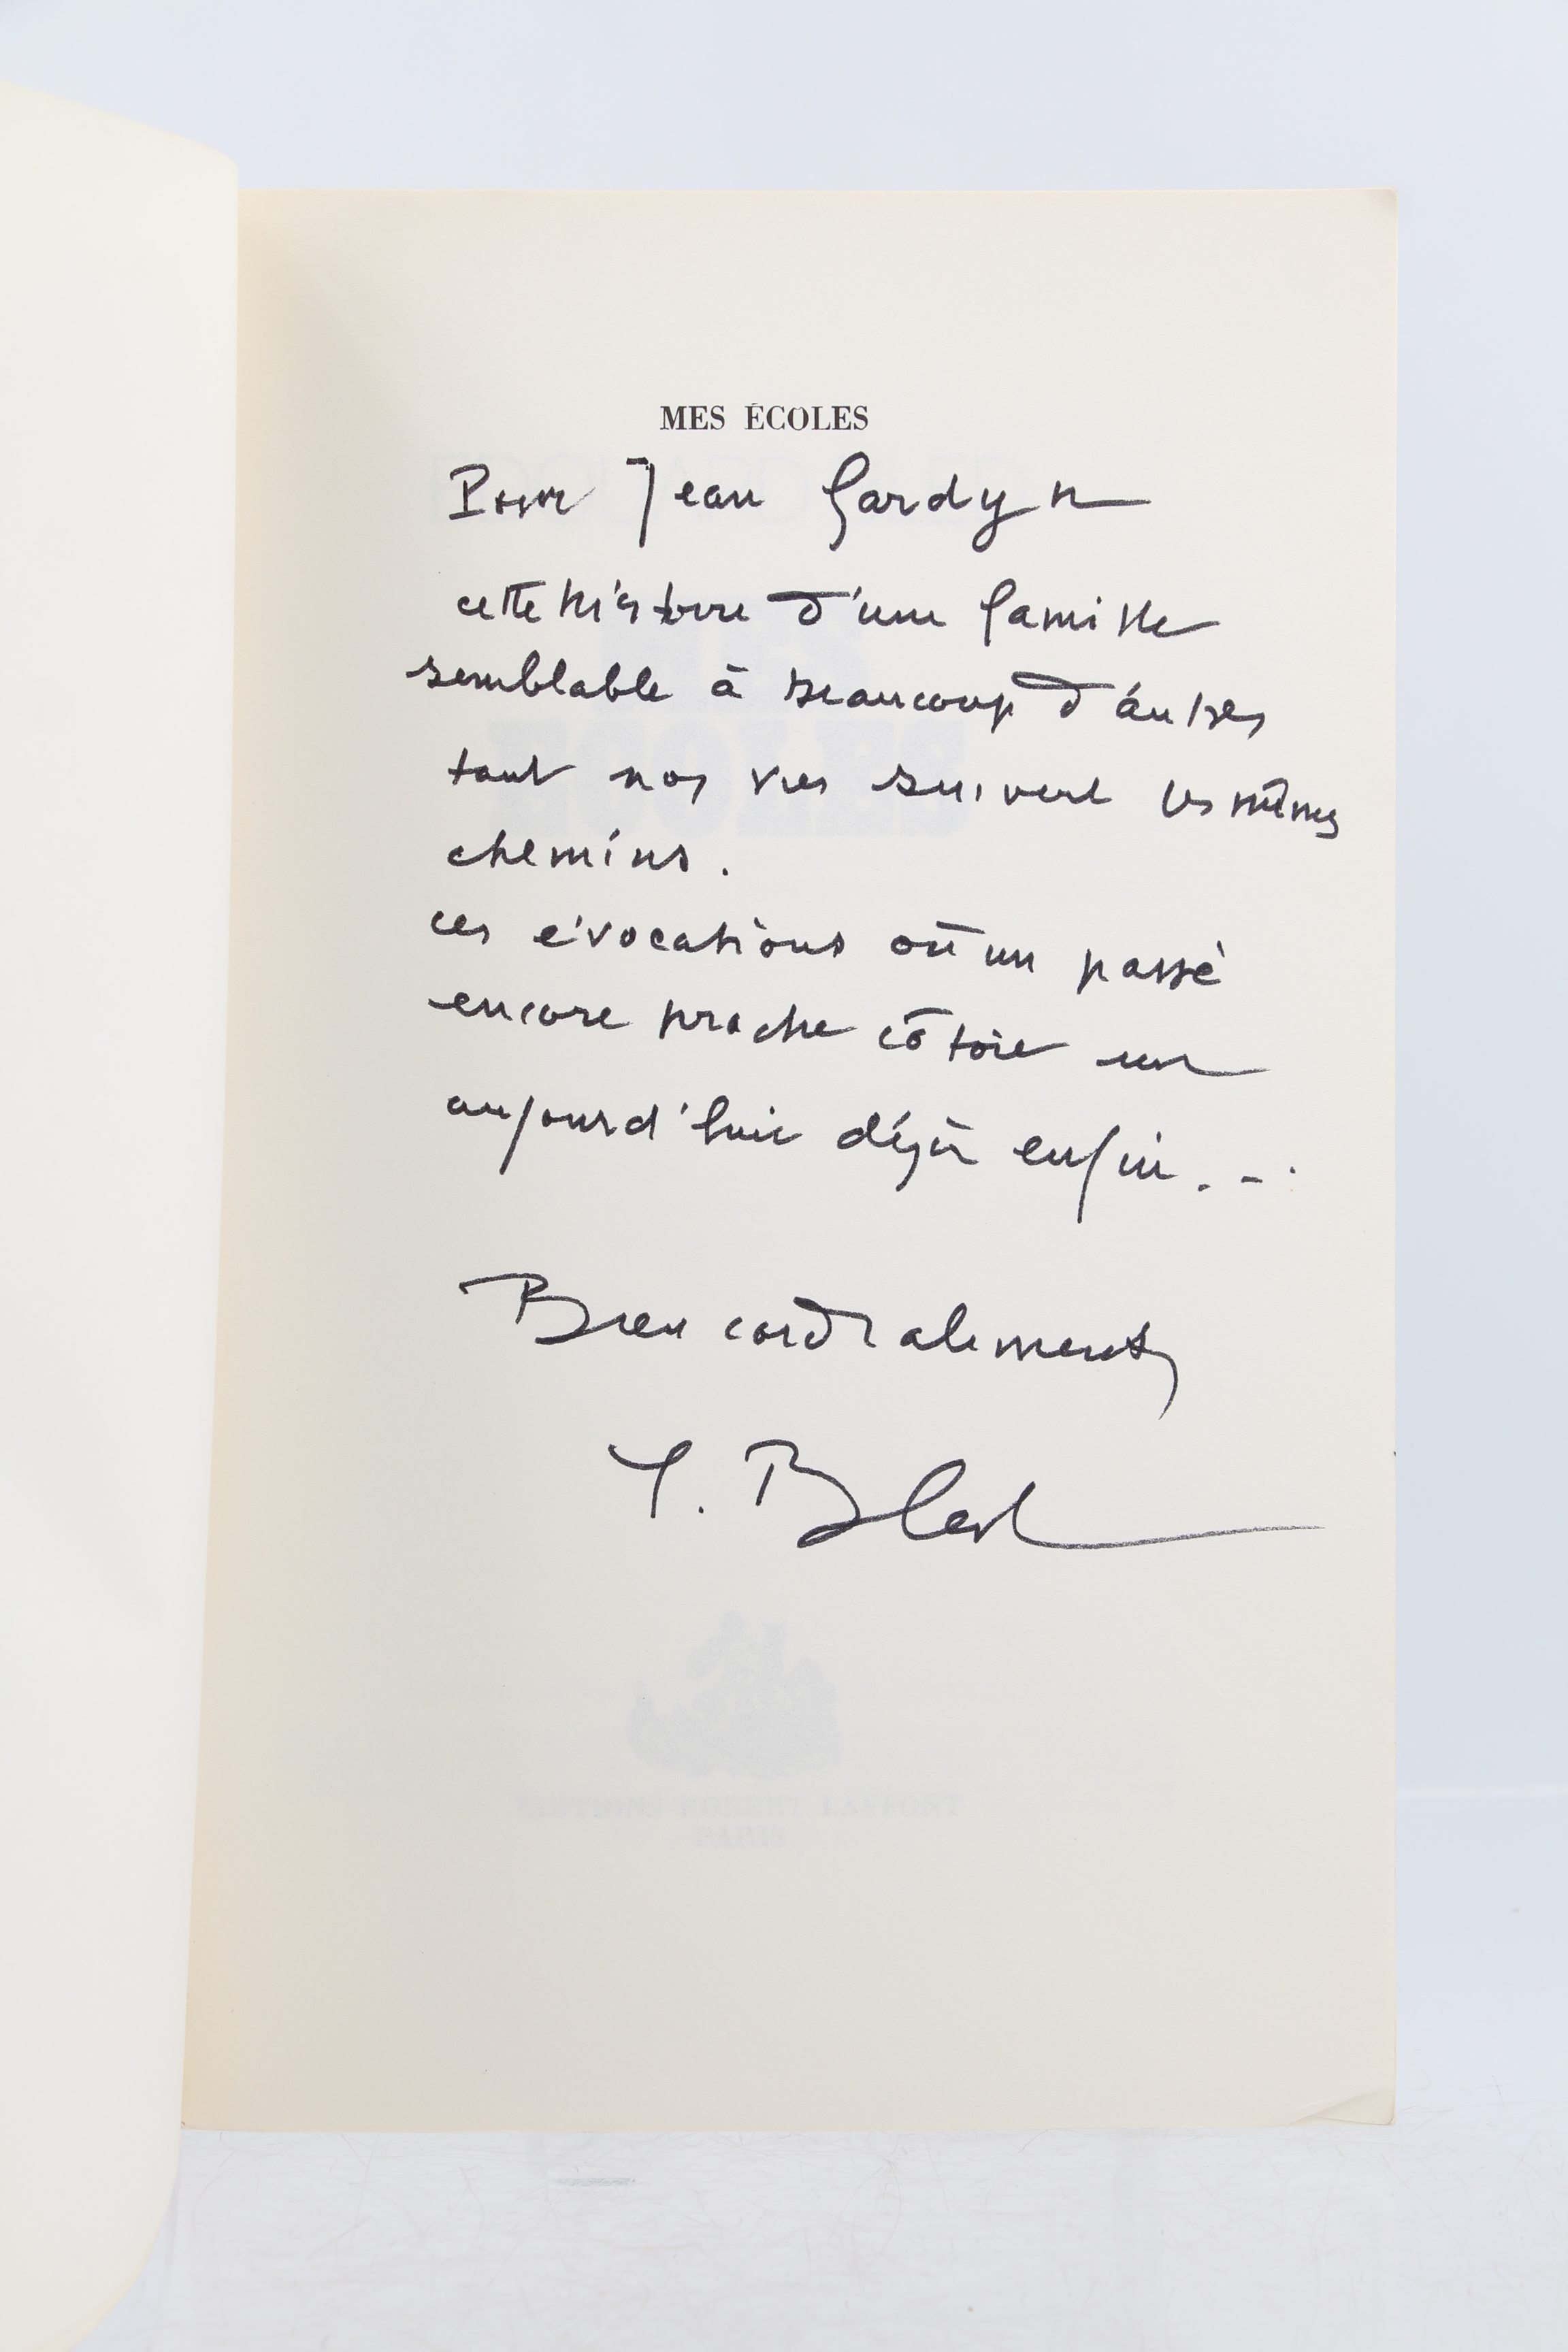 MES ÉCOLES
Pour Jean Gardyn
cette histoire d'une famille
semblable à beaucoup d'autres
tant nos vies suivent les mêmes
chemins.
ces évocations où un passé
encore proche côtoie un
aujourd'hui déjà enfui...
Bien cordialement,
EDITIONS ROBERT LAFFONT
PARIS